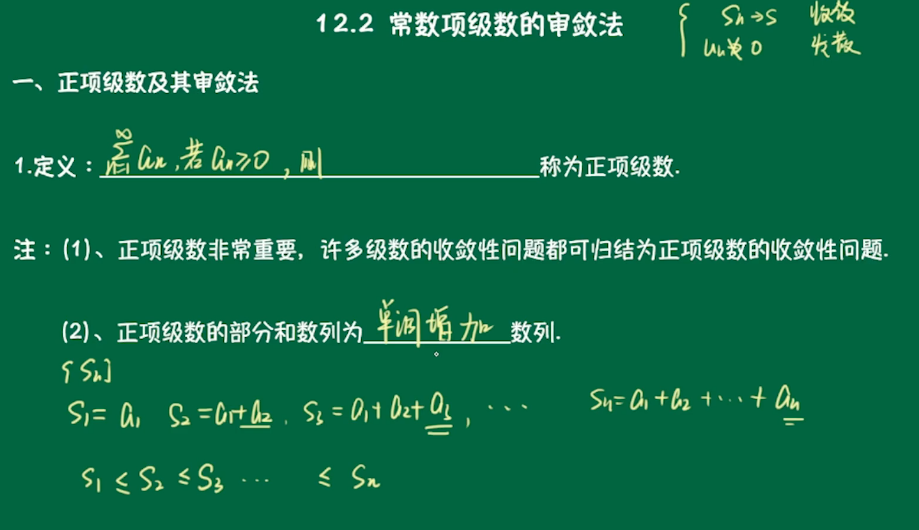 12.2 常数项级数的审敛法
Sn→S 收敛
un↛0 发散
一、正项级数及其审敛法
1.定义：∑_{n=1}^{∞} an, 若 an≥0, 则 称为正项级数.
注：(1)、正项级数非常重要，许多级数的收敛性问题都可归结为正项级数的收敛性问题.
(2)、正项级数的部分和数列为 单调增加 数列.
{Sn}
S1=a1 S2=a1+a2, S3=a1+a2+a3, ··· Sn=a1+a2+···+an
S1≤S2≤S3 ··· ≤Sn